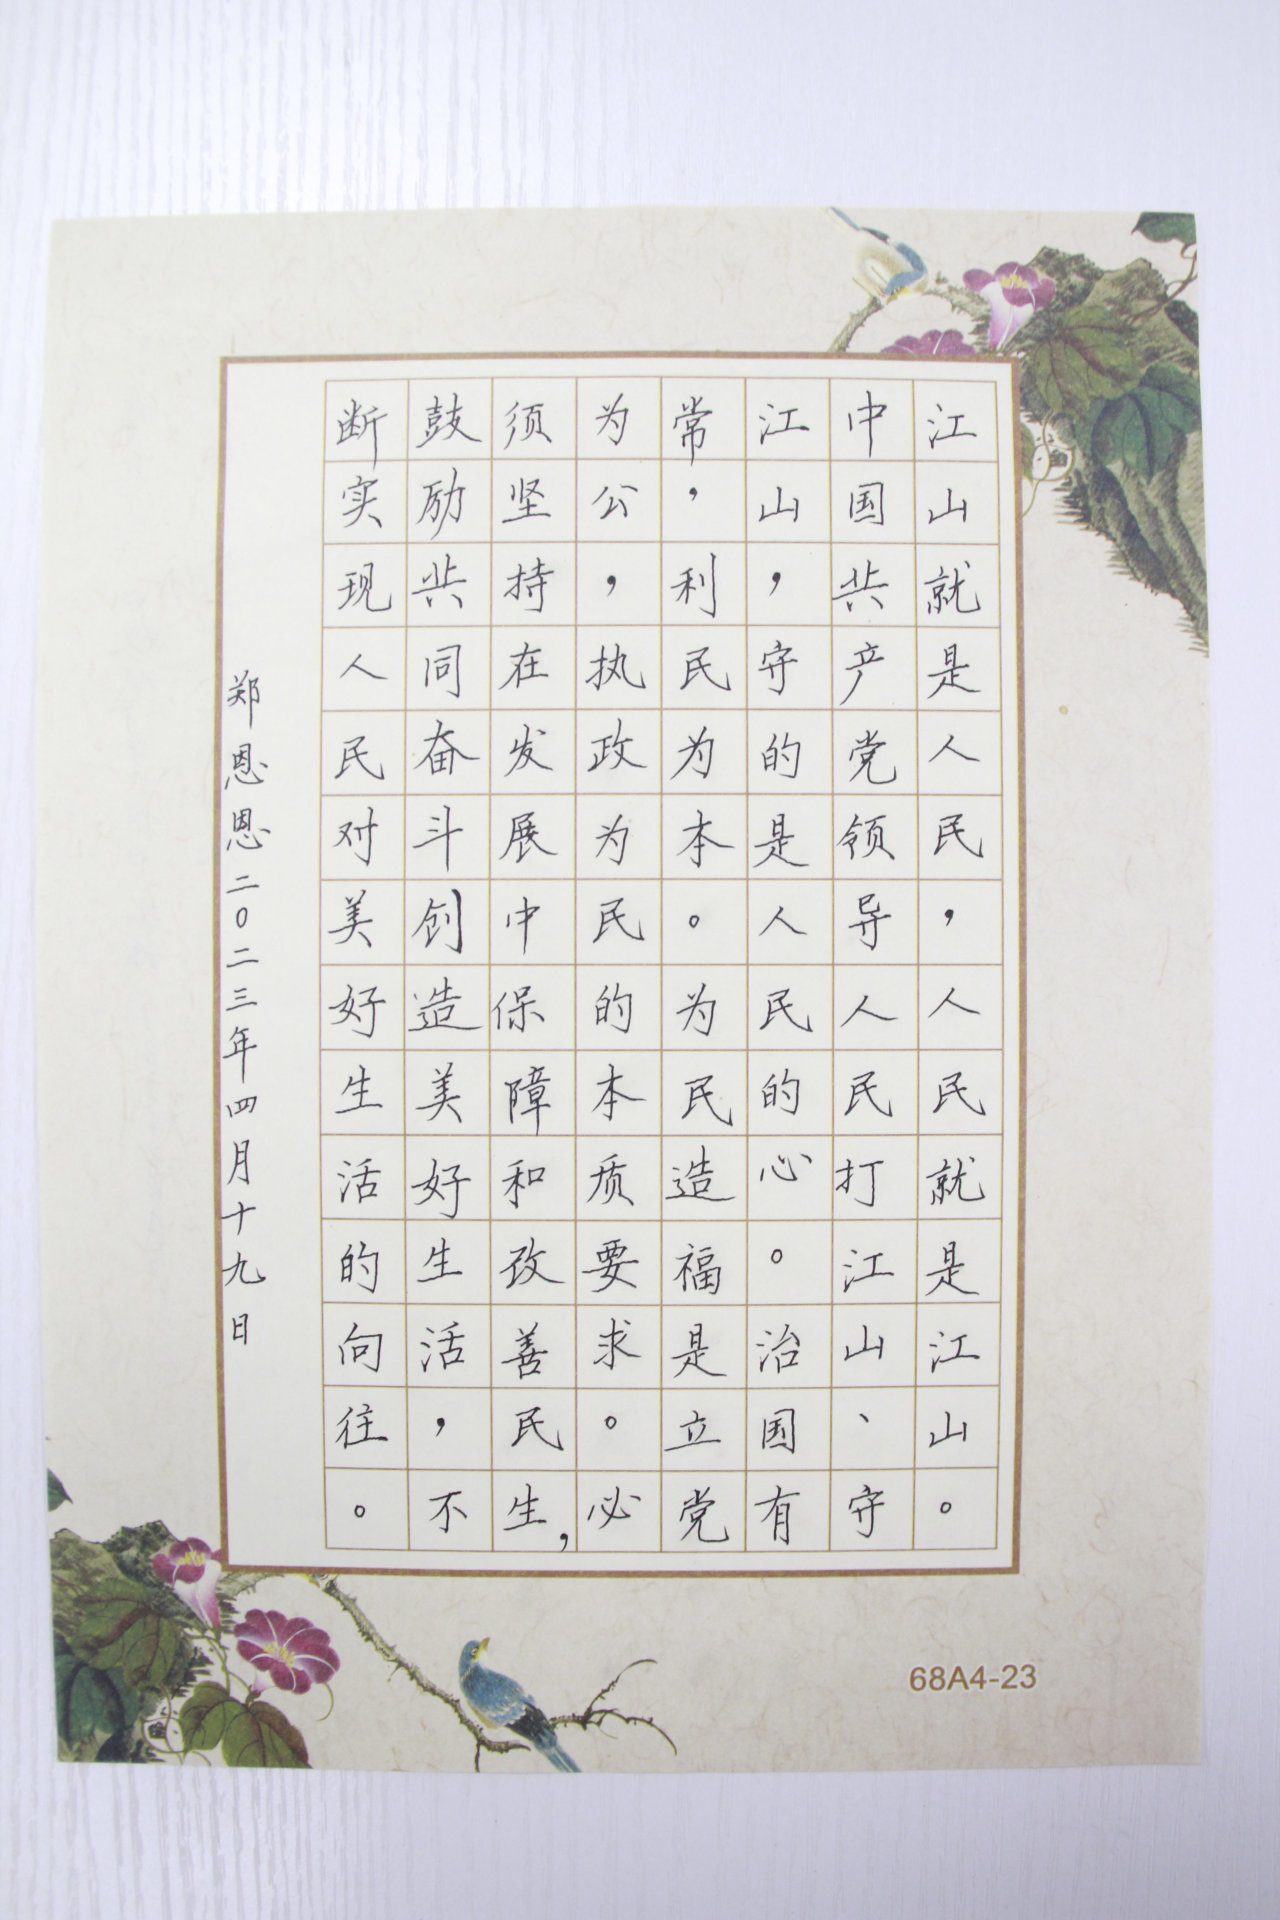 江山就是人民，人民就是江山。
中国共产党领导人民打江山、守
江山，守的是人民的心。治国有
常，利民为本。为民造福是立党
为公，执政为民的本质要求。必
须坚持在发展中保障和改善民生，
鼓励共同奋斗创造美好生活，不
断实现人民对美好生活的向往。
郑恩恩二〇二三年四月十九日
68A4-23